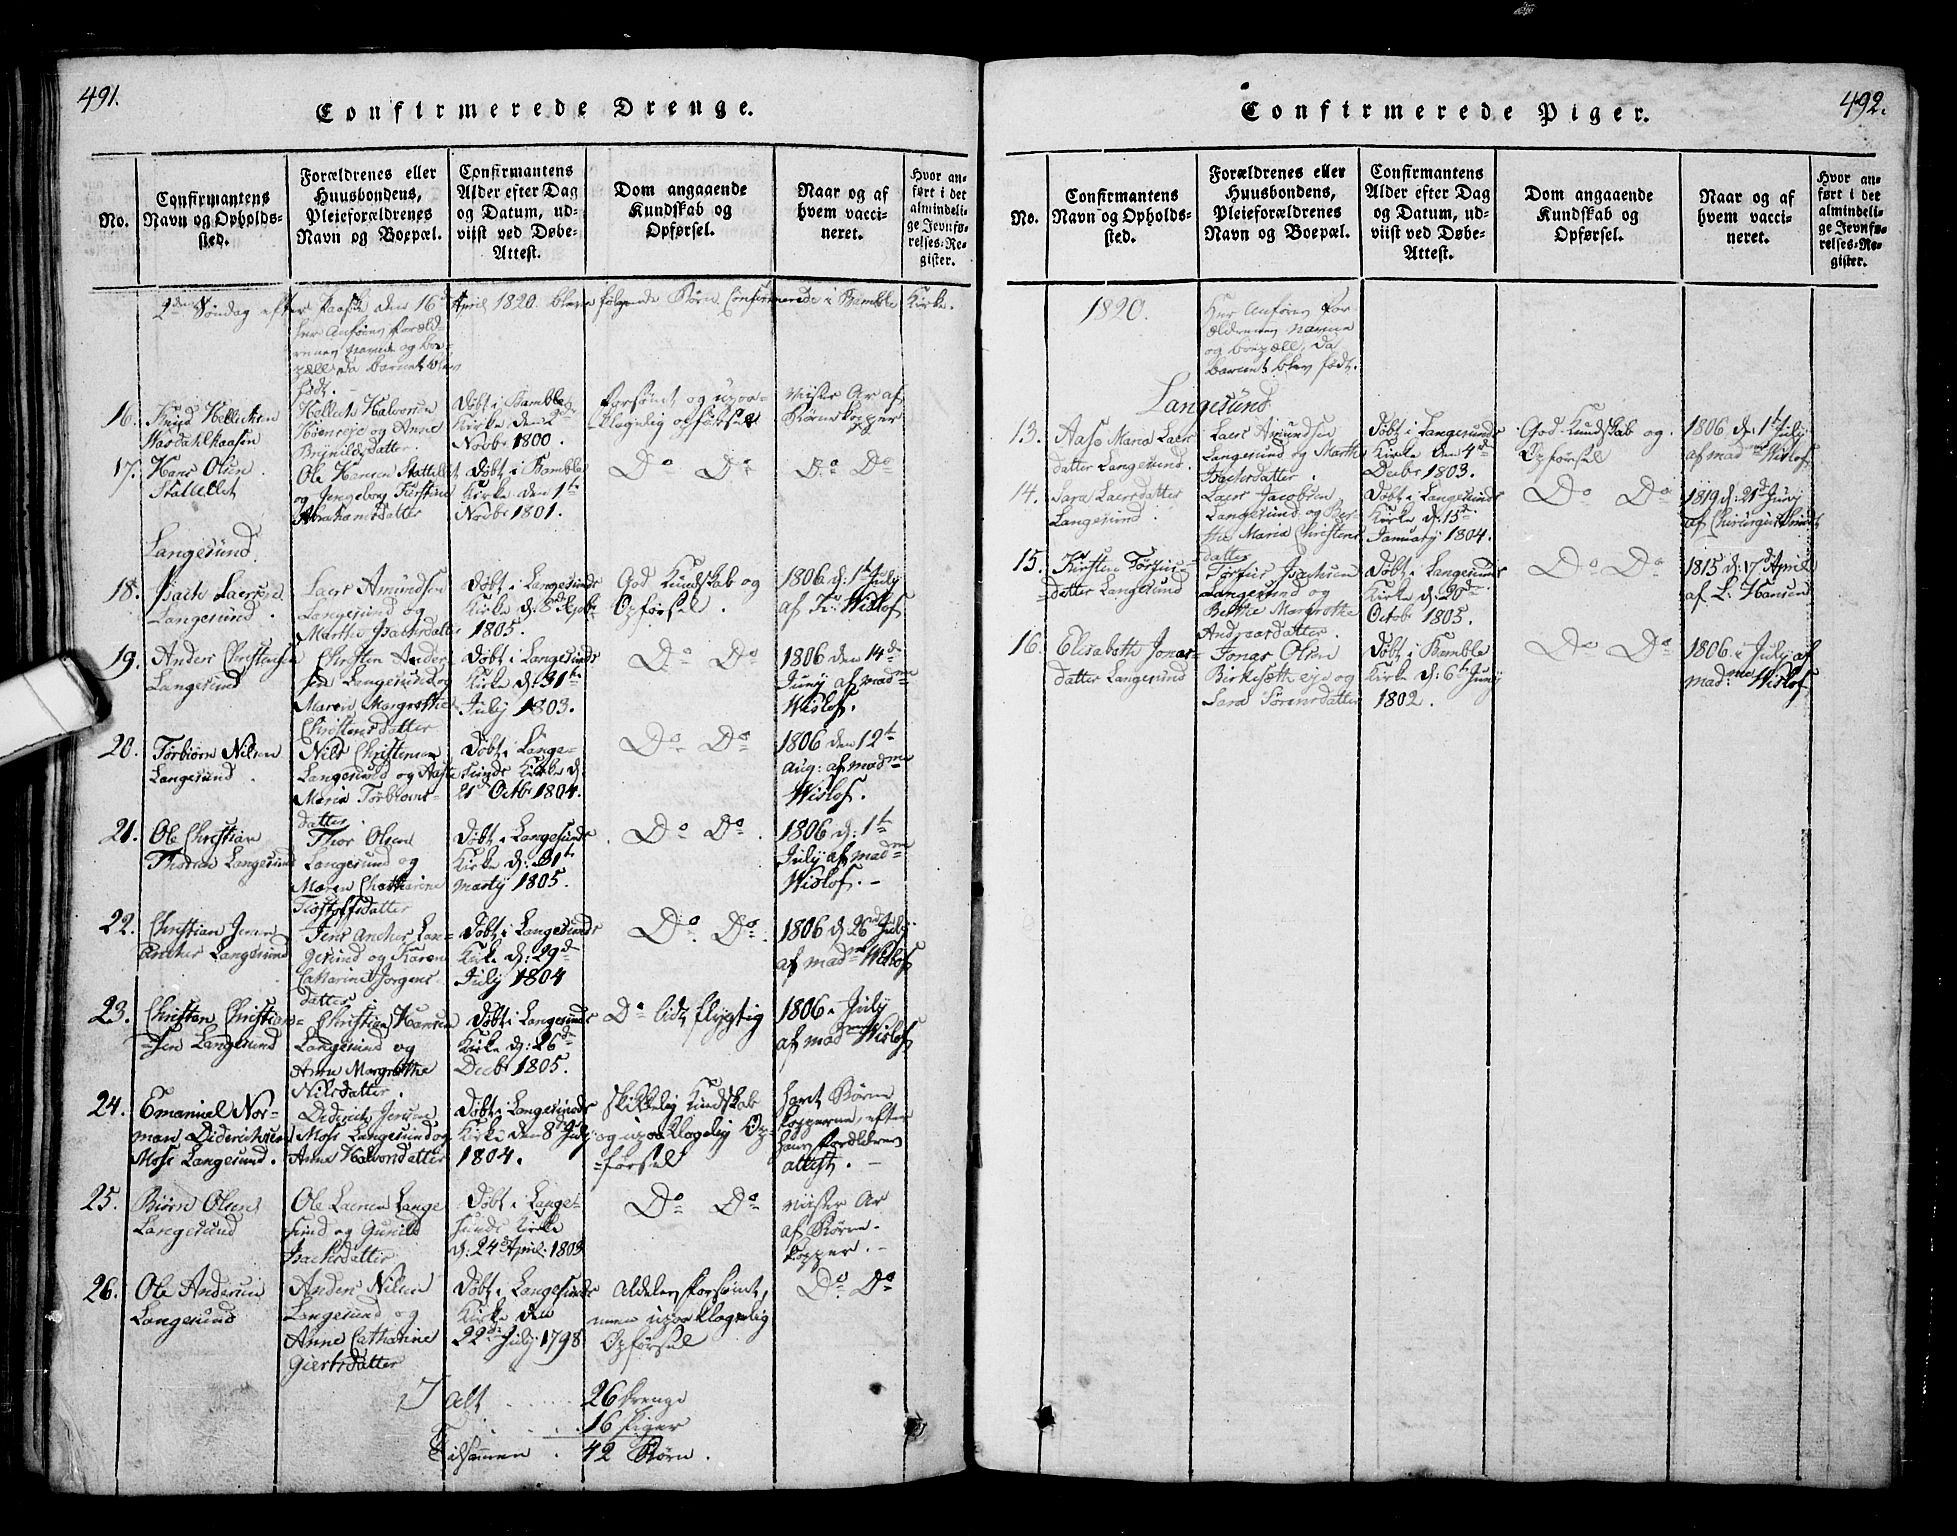 491.
Confirmerede Drenge.
No.
Confirmantens
Navn og Opholds-
sted.
Forældrenes eller
Huusbondens,
Pleieforældrenes
Navn og Boepæl.
Confirmantens
Alder efter Dag
og Datum, ud-
viist ved Døbe-
Attest.
Dom angaaende
Kundskab og
Opførsel.
Naar og af
hvem vacci-
neret.
Hvor an-
ført i det
almindeli-
ge Jevnfø-
relses-Re-
gister.
2den Søndag efter Paaske den 16de April 1820 bleve følgende Børn Confirmerede i Bamble Kirke.
her anføres foræld-
renes navne og boe-
pæll, da barnet blev
født.
16.
Knud Kellechsen
Kellech Halvorsen
og Anne
Brynildsdatter
Døbt i Bamble
Kirke den 2de
Novbr 1800.
forsømt og upaa-
klagelig opførsel
viiser Ar af
Børnekopper
17.
Hans Olsen
Stallellet
Ole Hansen Stallellet
og Jngeborg Kirstine
Abrahamsdatter
Døbt i Bamble
Kirke den 1te
Novbr 1801.
Do Do
Do Do
Langesund.
18.
Isach Laersen
Langesund.
Laers Amundsen
Langesund og
Marthe Isachsdatter
Døbt i Langesunds
Kirke d: 8de
1805.
God Kundskab og
Opførsel.
1806 d: 1te July
af Fr: Wisløf
19.
Anders Christensen
Langesund
Christen Ander-
sen Langesund og
Maren Margrethe
Christensdatter
Døbt i Langesunds
Kirke d: 31te
July 1803.
Do Do
1806 den 14de
Juny af madme
Wisløf.
20.
Torbiørn Nilsen
Langesund.
Nils Christensen
Langesund og Aaste
Maria Torbiorns-
datter
Døbt i Lange-
sunds Kirke d:
21d Octbr 1804.
Do Do
1806 den 12te
Aug: af madme
Wisløf.
21.
Ole Christian
Thorsen Langesund
Thor Olsen
Langesund og
Maren Chatharine
Tistoffsdatter
Døbt i Langesunds
Kirke d: 31te
marty 1805.
Do Do.
1806 d: 1te
July af madme
Wisløf.
22.
Christian Jensen
Ancher Langesund
Jens Ancher Lan-
gesund og Karen
Catharine Jorgens-
datter
Døbt i Langesunds
Kirke d: 29de
July 1804
Do Do.
1806 d 26d July
af madme Wisløf
23.
Christen Christian-
-sen Langesund
Christian Hansen
Langesund og
Anne Margrethe
Nilsdatter.
Døbt i Langesunds
Kirke d: 26de
Decbr 1805.
Do lidt flygtig
1806 i July
af madme Wisløf
24.
Emanuel Nor-
man Diderichsen
Mohr Langesund.
Diderich Jensen
Mohr Langesund og
Anne Halvorsdatter
Døbt i Langesunds
Kirke den 8d July
1804.
skikkelig Kundskab
og upaaklagelig Op-
=førsel
havt Børne
kopperne, efter
hans forældres
attest.
25.
Biørn Olsen
Langesund
Ole Laersen Lange
sund og Gunild
Isachsdatter
Døbt i Lange-
sunds Kirke
d: 24d April 1803
Do Do
viiser Ar
af Børne-
kopper.
26.
Ole Andersen
Langesund
Anders Nilsen
Langesund og
Anne Catharine
Giertsdatter
Døbt i Langesunds
Kirke den
22de July 1798
Aldeles forsømt,
men upaaklagelig
Opførsel
Do Do
J alt 26 Drenge
16 Piger
Tilsammen 42 Børn.
492.
Confirmerede Piger.
No.
Confirmantens
Navn og Opholds-
sted.
Forældrenes eller
Huusbondens,
Pleieforældrenes
Navn og Boepæl.
Confirmantens
Alder efter Dag
og Datum, ud-
viist ved Døbe-
Attest.
Dom angaaende
Kundskab og
Opførsel.
Naar og af
hvem vacci-
neret.
Hvor an-
ført i det
almindeli-
ge Jevnfø-
relses-Re-
gister.
1820.
Her anføres For-
ældrenes navne
og boepæll, da
barnet blev født.
Langesund
13.
Aase Maria Laers
datter Langesund.
Laers Amundsen
Langesund og Marthe
Isachsdatter
Døbt i Langesunds
Kirke den 4de
Decbr 1803.
God Kundskab og
Opførsel
1806 d: 1te July
af madme Wisløf
14.
Sara Laersdatter
Langesund.
Laers Jacobsen
Langesund og Ber-
the Maria Christens
datter
Døbt i Langesunds
Kirke d: 15de
January 1804.
Do Do
1819 d: 21d Juny
af Chirurgus
15.
Kirstine Torjus-
=datter Langesund
Torjus Isachsen
Langesund og
Berthe Margrethe
Andreasdatter.
Døbt i Langesunds
Kirke d: 20de
Octobr 1805.
Do Do
1815 d: 17d April
af L: Hansen
16.
Elisabeth Jonas-
datter Langesund
Jonas Olsen
Birkesætheeje og
Sara Sørensdatter
Døbt i Bamble
Kirke d: 6te Juny
1802.
Do Do
1806 i July af
madme Wisløf